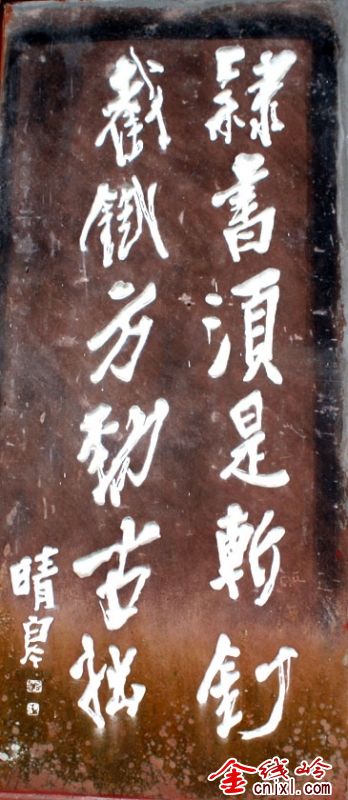 隸書須是斬釘
截鐵方勁古拙
晴皋
金线岭
cnjxl.com